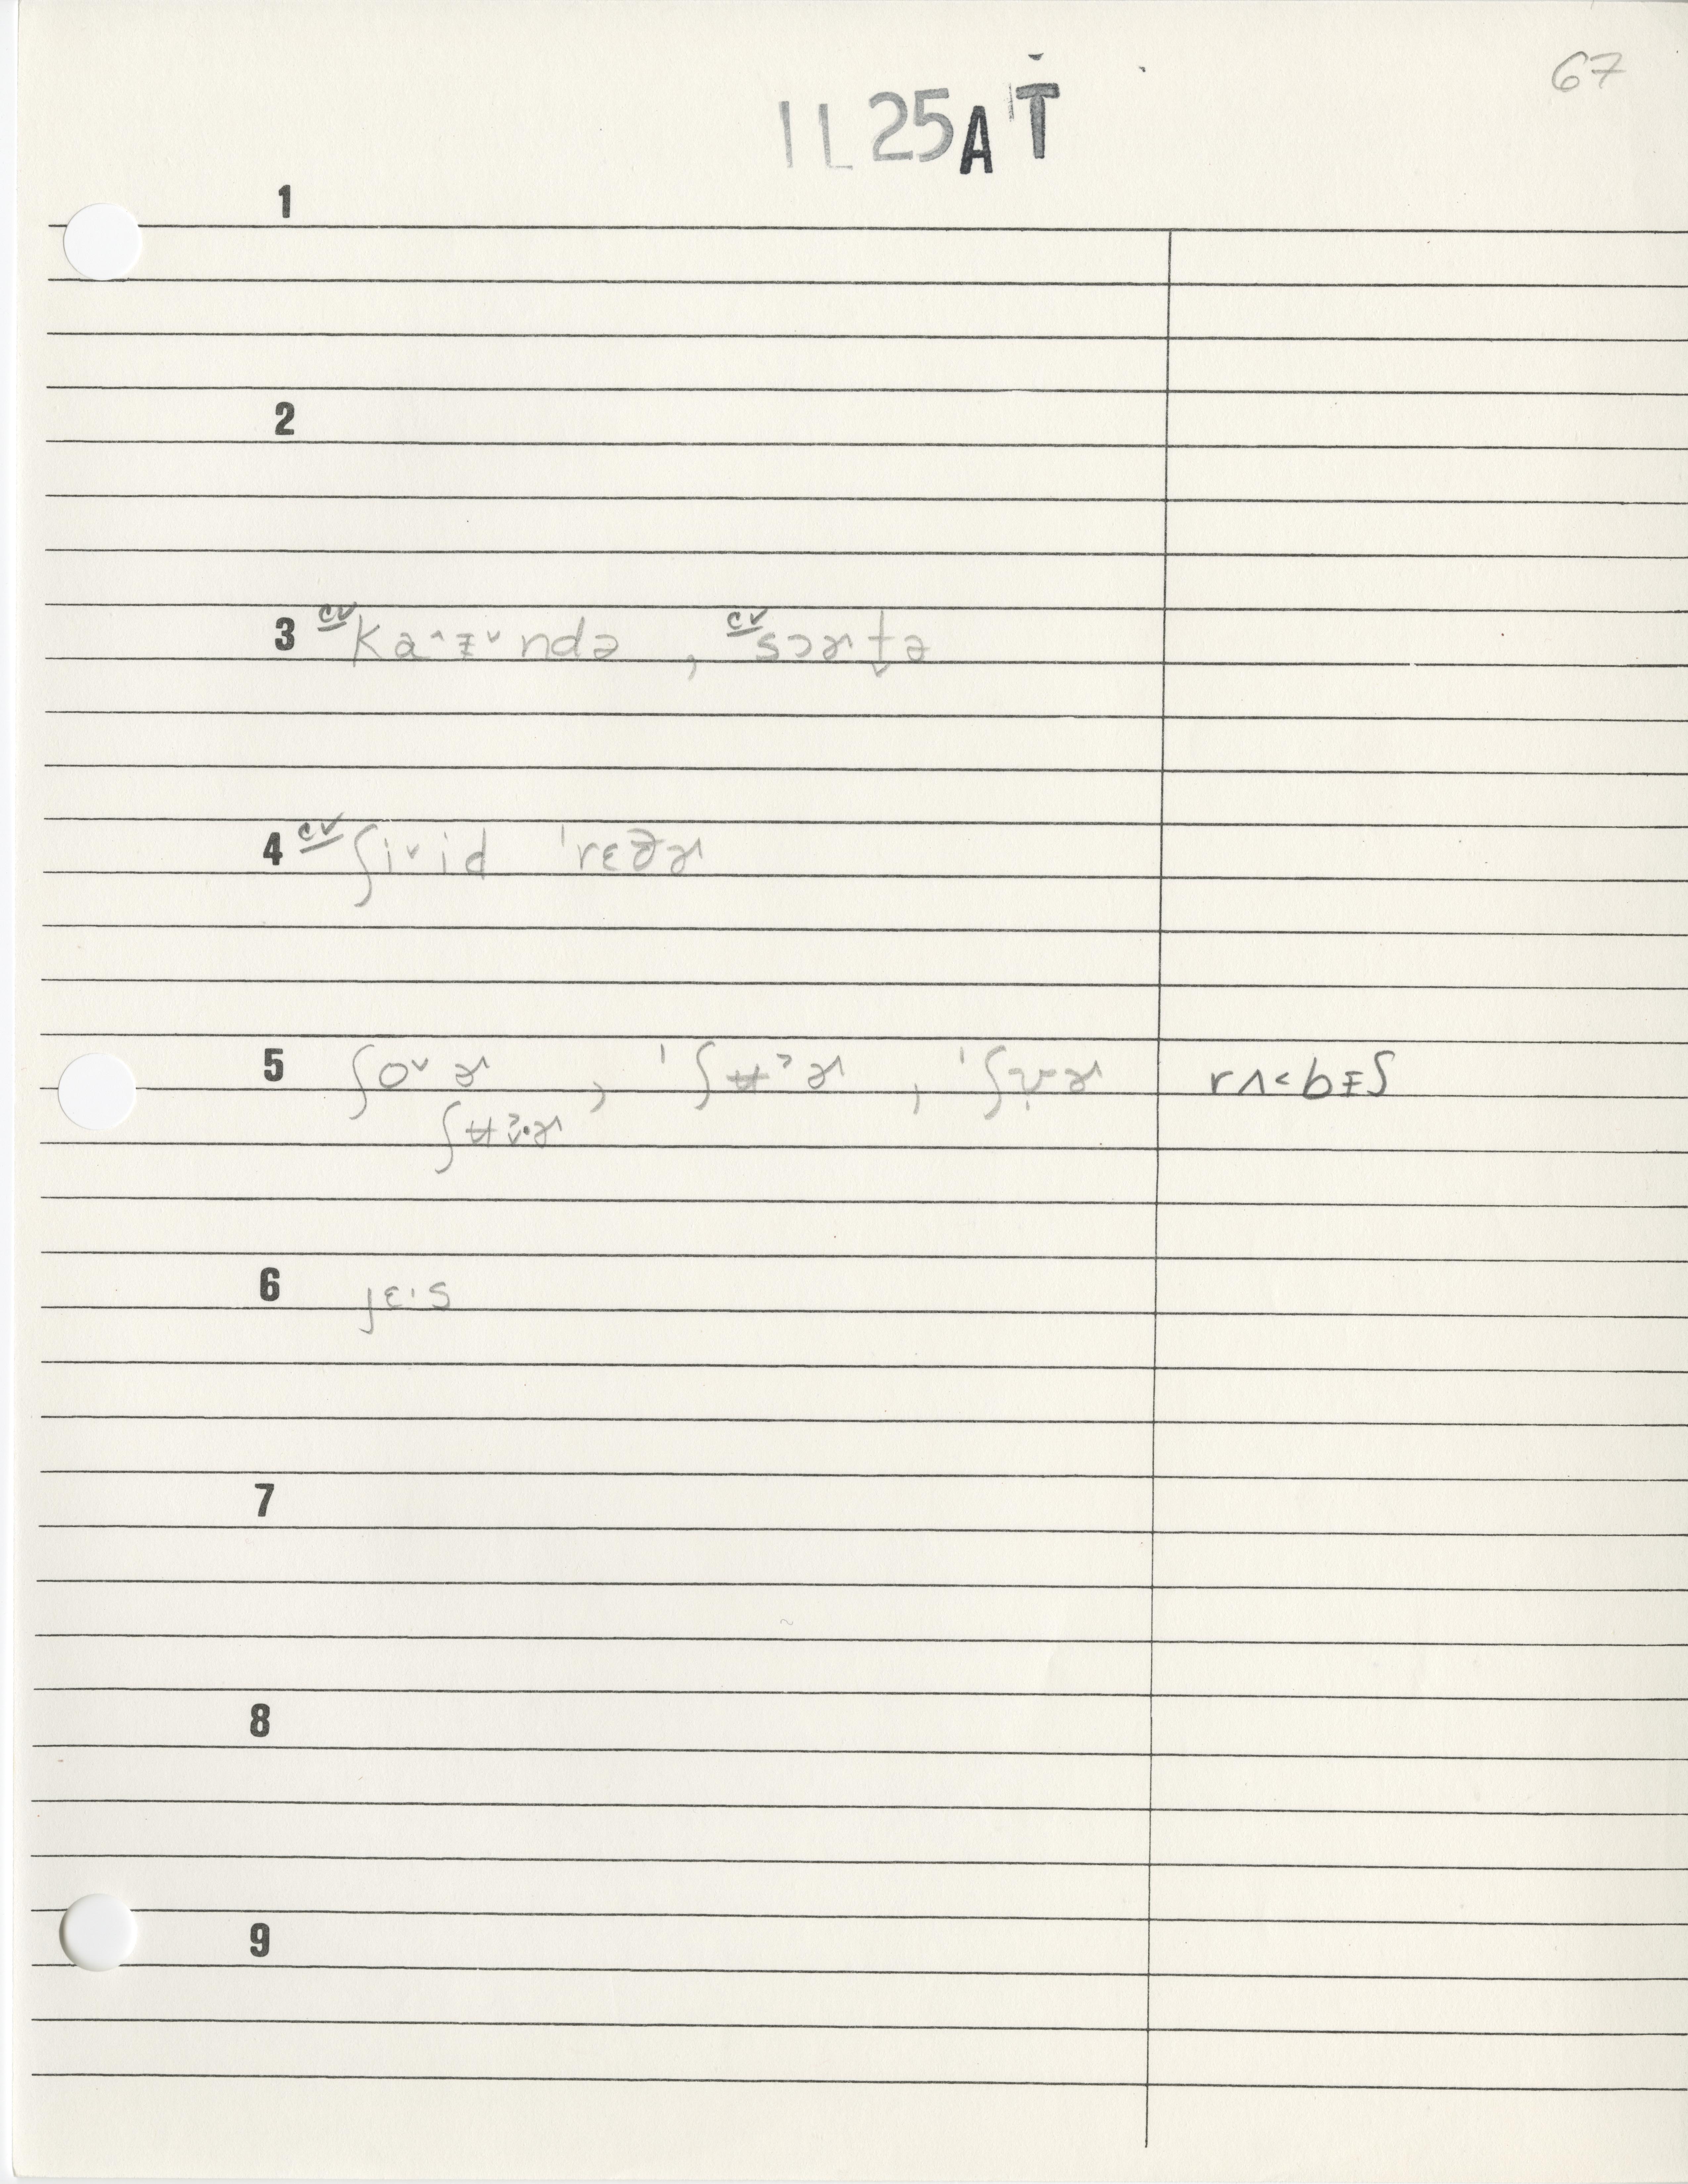 67
IL 25 A T
1
2
3 cv ka˄ɪ˅ndə , cv sɔɚt̬ə
4 cv ʃi˅id ˈrɛðɚ
5 ʃo˅ɚ , ˈʃʉ˃ɚ , ˈʃ ɚ rʌ˂bɪʃ
ʃʉ ɚ
6 jɛ·s
7
8
9